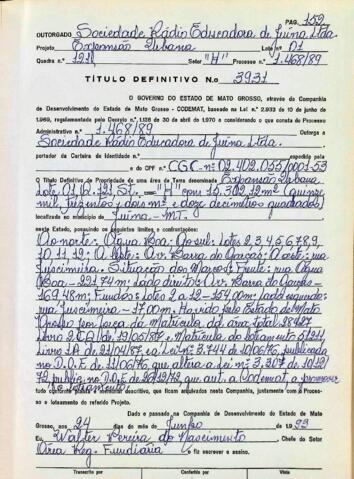 PAG. 152
OUTORGADO Sociedade Rádio Educadora de Juína Ltda.
Projeto Expansão Urbana Lote nº 01
Quadra n.º 121 Setor "H" Processo n.º 1.468/89
TÍTULO DEFINITIVO N.o 3931
O GOVERNO DO ESTADO DE MATO GROSSO, através da Companhia
de Desenvolvimento do Estado de Mato Grosso - CODEMAT, baseado na Lei n.º 2.933 de 10 de junho
de 1969, regulamentada pelo Decreto n.º 1.128 de 30 de abril de 1970 e considerando o que consta do Processo
Administrativo n.º 1.468/89 Outorga a
Sociedade Rádio Educadora de Juína Ltda.
portador da Carteira de Identidade n.º expedida pela
e do CPF n.º CGC-nº 02.402.055/0001-53
O Título Definitivo de Propriedade de uma área de Terra denominada Expansão Urbana
Lote 01 Q. 121 St. = "H" com 15.302,12m² (quinze
mil, trezentos e dois m² e doze decímetros quadrados)
localizada no município de Juína - MT.
neste Estado, possuindo os seguintes limites e confrontações:
Ao norte: Água Boa - Ao sul: Lotes 2,3,4,5,6,7,8,9,
10,11,12; A Leste: Av. Barra do Garças; A oeste: rua
Juscimeira. Situação dos Marcos: Frente: rua Água
Boa - 221,74m. Lado direito: Av. Barra do Garças -
169,48m; Fundos: Lotes 2 a 12 - m. Lado esquerdo:
rua Juscimeira - m. Havido pelo Estado de Mato
Grosso por força da Matrícula da área total 28427
Livro 2 de 12/06/87, e Matrícula do loteamento
Livro de 21/04/87, e Lei nº 3.744 de 10/06/76, publicada
no D.O.E. de 11/06/76 que altera a Lei nº 3.307 de 18/12/
72, public. no D.O.E. de 20/12/72, que aut. a Codemat, a promover
tudo conforme planta e memorial descritivo, que ficam arquivados nesta Companhia, juntamente com o Processo
e loteamento do referido Projeto.
Dado e passado na Companhia de Desenvolvimento do Estado de Mato
Grosso, aos 24 dias do mês de Junho de 1.993
Eu, Walter Pereira do Nascimento Chefe do Setor
Área Reg. Fundiária o fiz escrever e assino.
Transcrito por Conferido por Visto